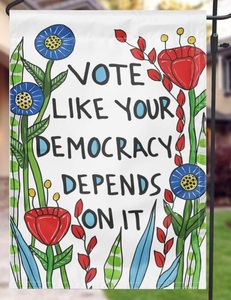 VOTE
LIKE YOUR
DEMOCRACY
DEPENDS
ON IT